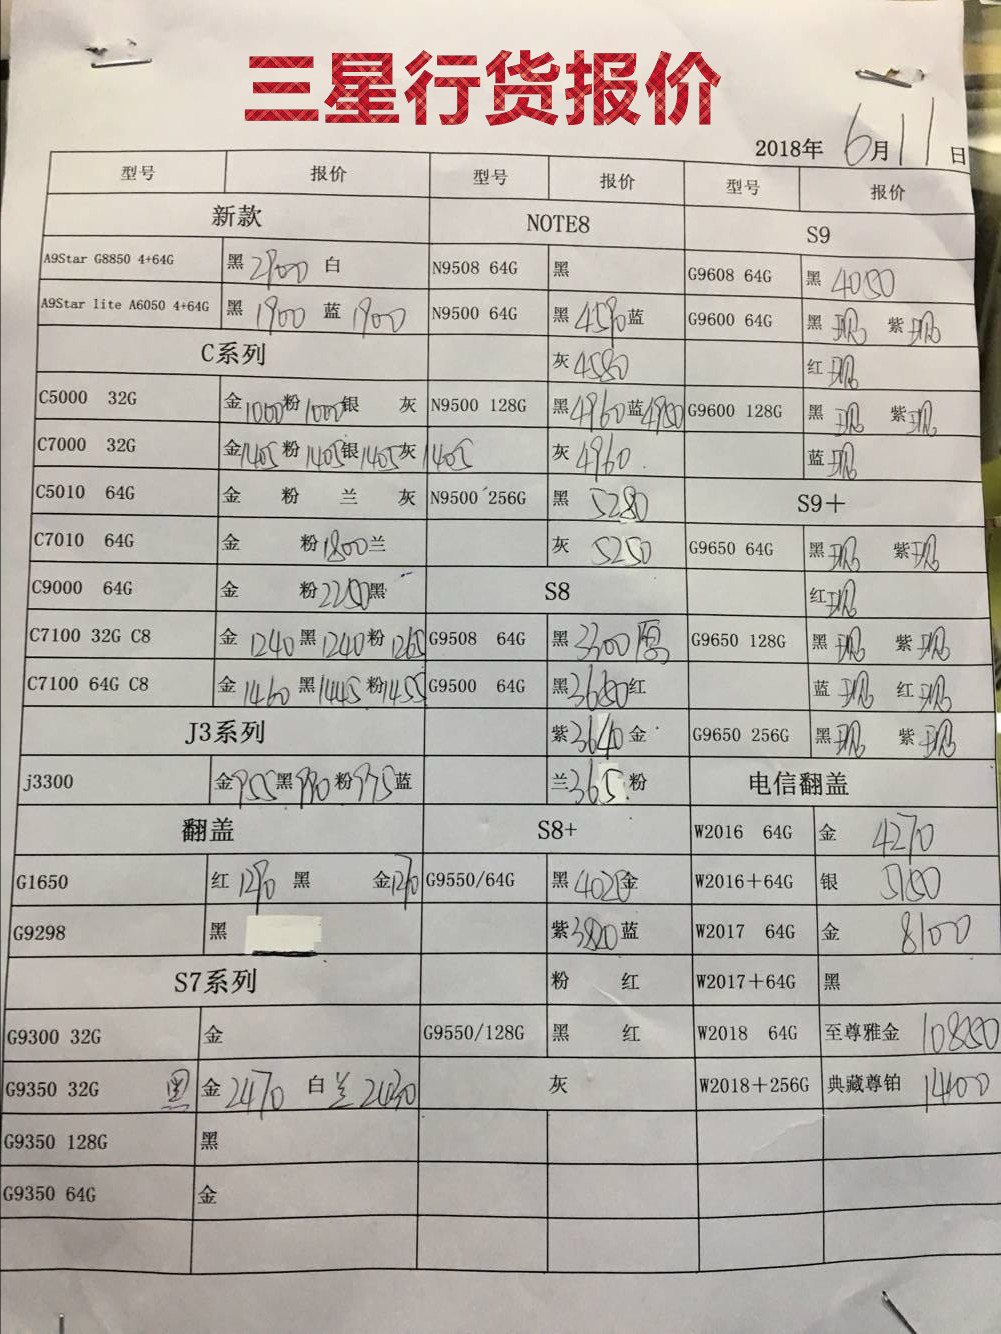 三星行货报价
2018年 6月11日
型号 报价 型号 报价 型号 报价
新款 NOTE8 S9
A9Star G8850 4+64G 黑2900 白 N9508 64G 黑 G9608 64G 黑4050
A9Star lite A6050 4+64G 黑1900 蓝1900 N9500 64G 黑4590蓝 G9600 64G 黑 现 紫现
C系列 灰4580 红现
C5000 32G 金1000粉1000银 灰 N9500 128G 黑4960蓝4950 G9600 128G 黑 现 紫现
C7000 32G 金1405粉1405银1405灰1405 灰4960 蓝现
C5010 64G 金 粉 兰 灰 N9500 256G 黑 5280 S9+
C7010 64G 金 粉1800兰 灰 5250 G9650 64G 黑现 紫现
C9000 64G 金 粉2250黑 S8 红现
C7100 32G C8 金1240黑1240粉1265 G9508 64G 黑3300 G9650 128G 黑现 紫现
C7100 64G C8 金1460黑1445粉1455 G9500 64G 黑3680红 蓝现 红现
J3系列 紫3640金 G9650 256G 黑现 紫现
j3300 金955黑990粉975蓝 兰365 粉 电信翻盖
翻盖 S8+ W2016 64G 金 4270
G1650 红1290 黑 金1270 G9550/64G 黑4020金 W2016+64G 银 5150
G9298 黑 紫3820蓝 W2017 64G 金 8100
S7系列 粉 红 W2017+64G 黑
G9300 32G 金 G9550/128G 黑 红 W2018 64G 至尊雅金 10850
G9350 32G 黑 金2470 白 兰2430 灰 W2018+256G 典藏尊铂 14400
G9350 128G 黑
G9350 64G 金